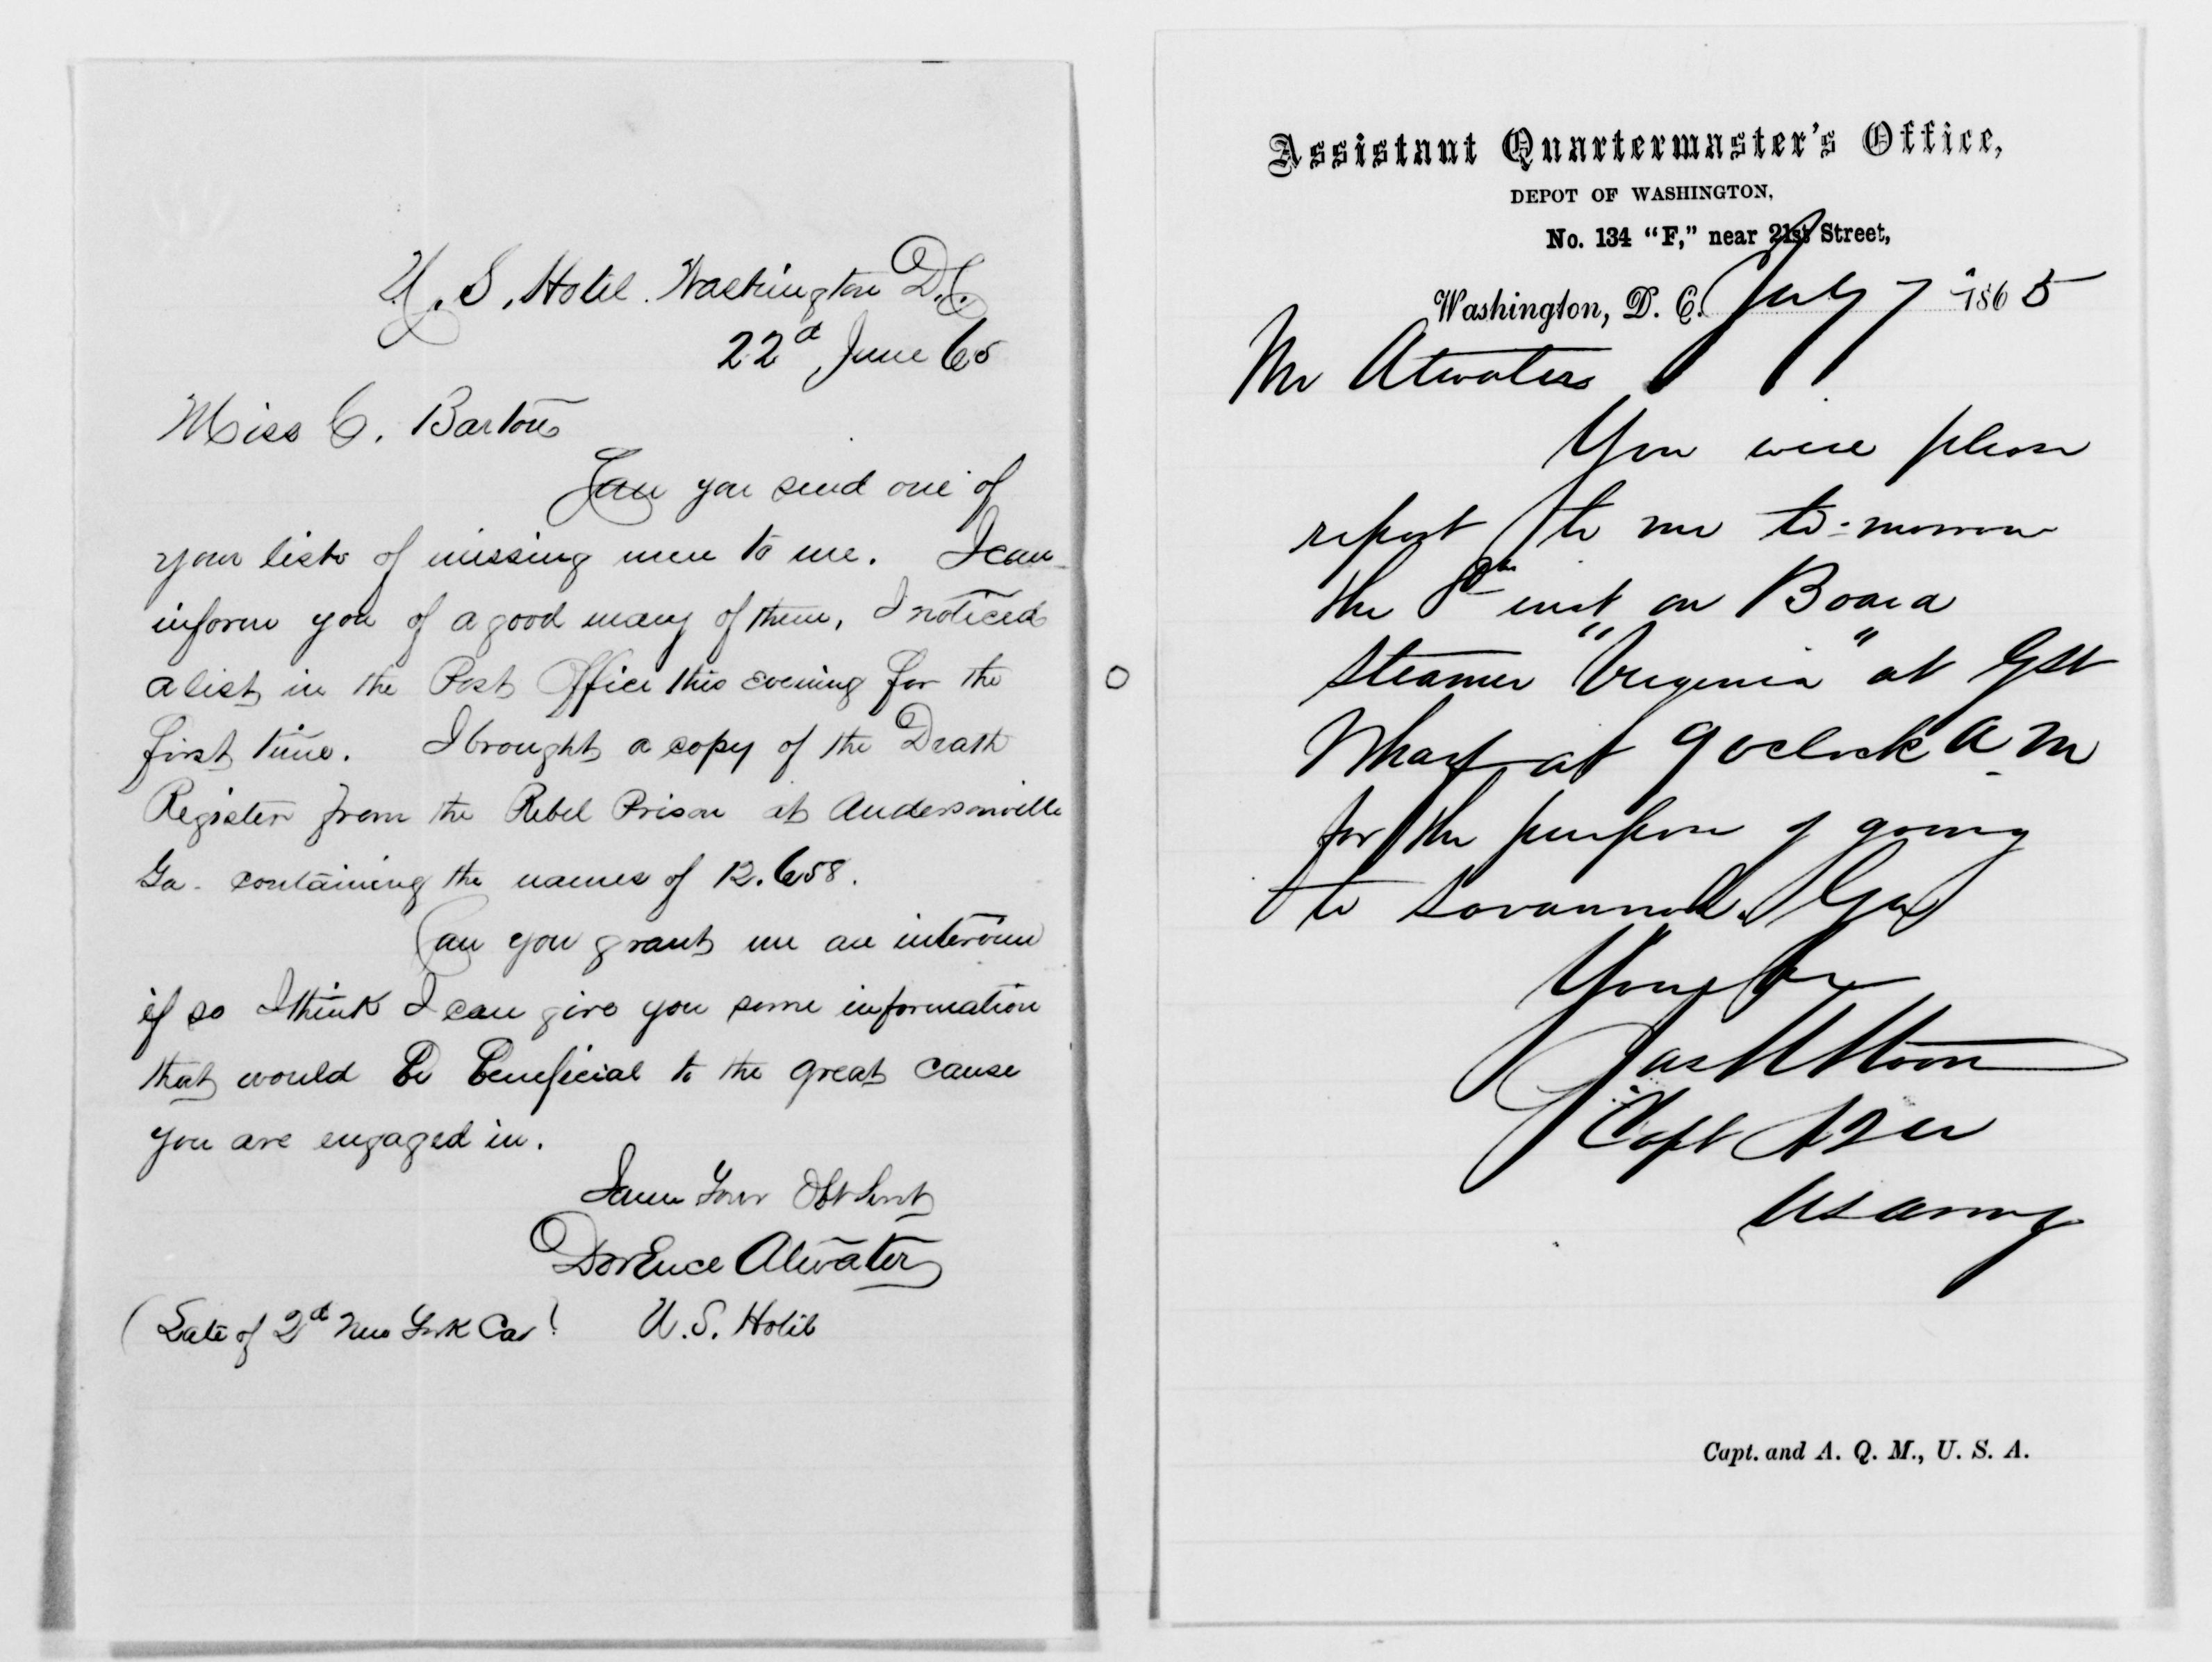 U. S. Hotel. Washington D.C.
22d June 65
Miss C. Barton
Can you send one of
your lists of missing men to me. I can
inform you of a good many of them, I noticed
a list in the Post Office this evening for the
first time. I brought a copy of the Death
Register from the Rebel Prison at Andersonville
Ga. containing the names of 12.658.
Can you grant me an interview
if so I think I can give you some information
that would be beneficial to the great cause
you are engaged in.
I am Your Obt Servt
Dorence Atwater
(Late of 2d New York Cav! U. S. Hotel
Assistant Quartermaster's Office,
DEPOT OF WASHINGTON,
No. 134 "F," near 21st Street,
Washington, D. C. July 7 1865
Mr Atwater
You will please
report to me to-morrow
the 8th inst on Board
Steamer "Virginia" at 6th
Wharf at 9 oclock A M
for the purpose of going
to Savannah. Ga
Yours
Jas M Moore
Capt AQM
US Army
Capt. and A. Q. M., U. S. A.